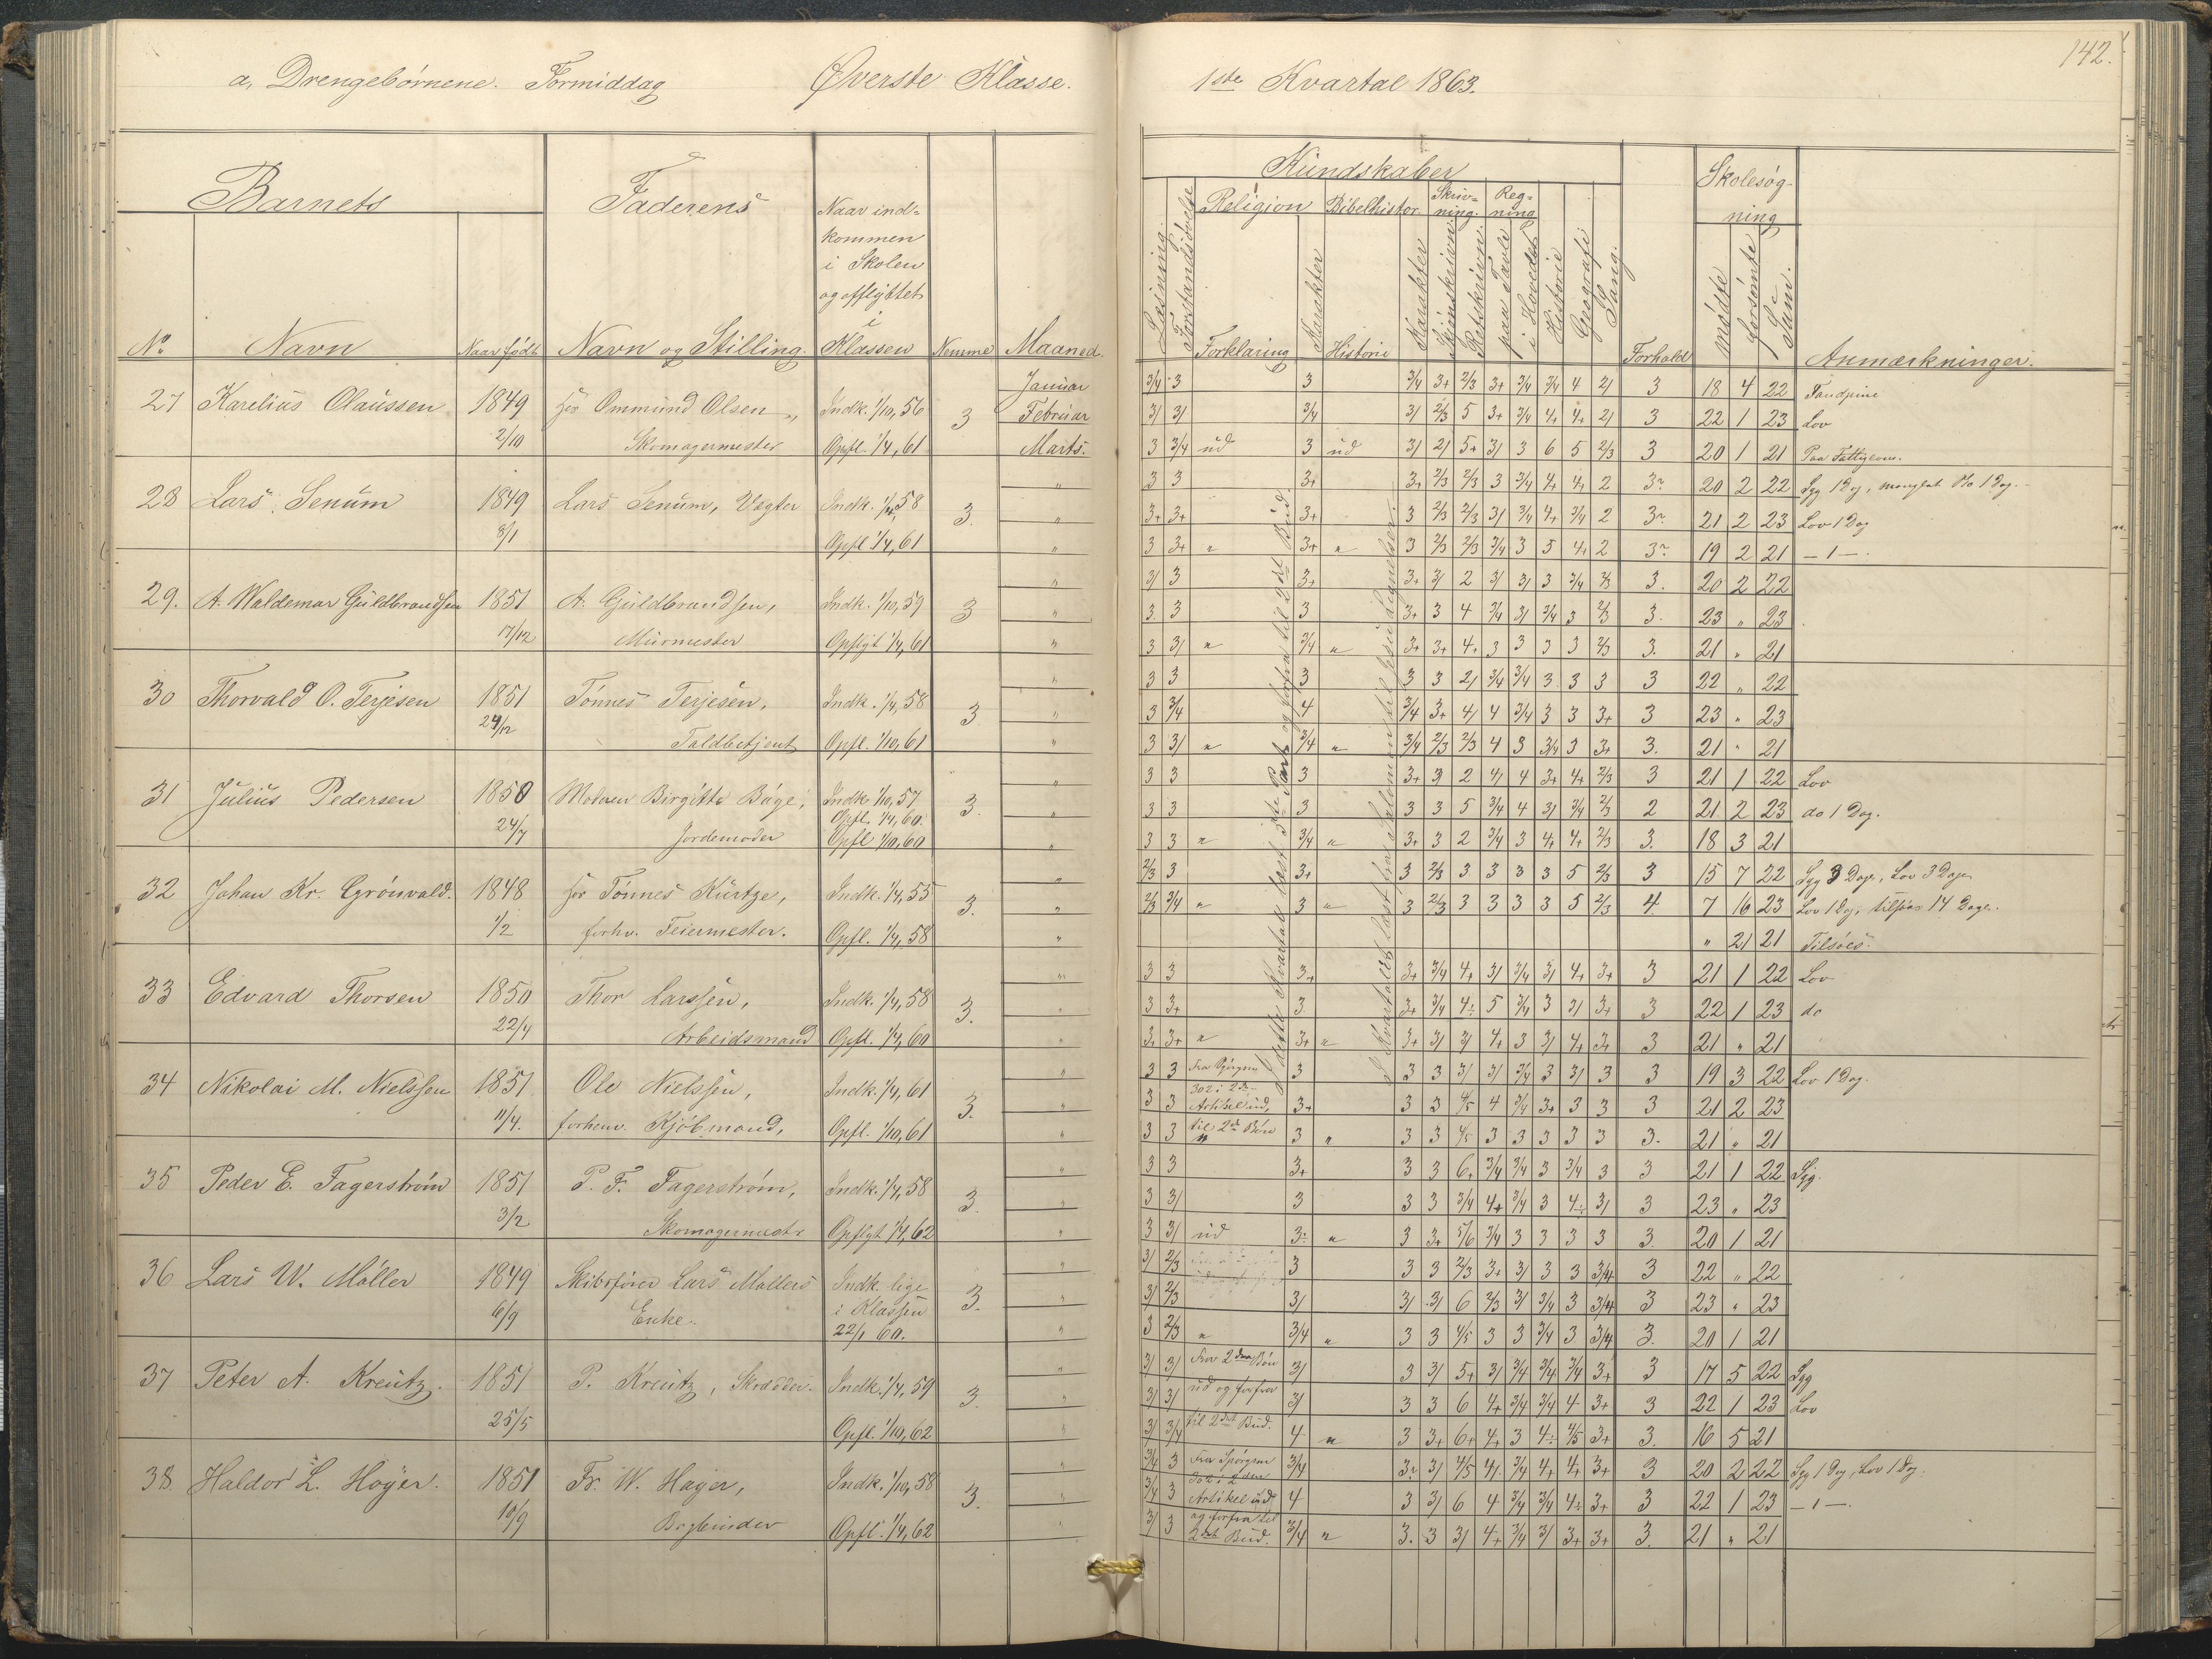 a, Drengebörnene. Formiddag Øverste Klasse. 1ste Kvartal 1863. 142.
Barnets Faderens Kundskaber Skolesøg-
ning
Religion Bibelhistor. Skriv= Reg=
ning. ning
Naar ind=
kommen
i Skolen
og opflyttet
i
No Navn Naar født Navn og Stilling. Klassen Nemme Maaned.
Læsning Forstandsøvelse Forklaring Karakter Historie Karakter Skjönskrivn. Retskrivn. paa Tavle i Hovedet Historie Geografi Sang. Forhold mödte forsömte Sum. Anmærkninger.
27 Karelius Olaussen 1849 Ommund Olsen Indk. 1/10, 56 3 Januar
Februar
2/10 Skomagermester Opfl. 1/4, 61 Marts.
3/4 3 3 3/4 3+ 2/3 3+ 3/4 3/4 4 2/ 3 18 4 22 Tandpine
3/ 3/ 3/4 3/ 2/3 5 3+ 3/4 4+ 4+ 2/ 3 22 1 23 Lov
3 3/4 ud 3 ud 3/ 2/ 5+ 3/ 3 6 5 2/3 3 20 1 21
28 Lars Senum 1849 Lars Senum, Vægter Indk. 1/4, 58 3.
8/1 Opfl 1/4, 61
3 3 3+ 3+ 2/3 2/3 3 3/4 4+ 4+ 2 20 2 22 Syg 1 Dag,
3+ 3+ 3+ 3 2/3 2/3 3/ 3/4 4+ 3/4 2 21 2 23 Lov 1 Dag
3 3+ " 3+ " 3 2/3 2/3 3/4 3 5 4+ 2 19 2 21 — 1 —.
29. A. Waldemar Guldbrandsen 1851 A. Guldbrandsen, Indk. 1/10, 59 3
17/12 Murmester Opflyt 1/4, 61
3/ 3 3+ 3+ 3/ 2 3/ 3/ 3 3/4 2/3 3. 20 2 22
3 3 3 3+ 3 4 3/4 3/ 3/4 3 2/3 3. 23 " 23
3 3/ " 3/4 " 3+ 3+ 4+ 3 3 3 3 2/3 3. 21 " 21
30 Thorvald O. Terjesen 1851 Tønnes Terjesen, Indk. 1/4, 58 3
24/12 Toldbetjent Opfl. 1/10, 61
3 3 3 3 3 2/ 3/4 3/4 3 3 3 3 22 " 22
3 3/4 4 3/4 3+ 4/ 4 3/4 3 3 3+ 3 23 " 23
3 3/ " 3/4 " 3/4 2/3 2/3 4 3 3/4 3 3+ 3. 21 " 21
31 Julius Pedersen 1850 Moderen Birgitte Bøge, Indk. 1/10, 57 3.
24/7 Jordemoder Opfl. 1/4, 60.
Opfl 1/10, 60
3 3 3 3+ 3/ 2 4/ 4 3+ 4+ 2/3 3 21 1 22 Lov
3 3 3 3 3 5 3/4 4 3/ 3/4 2/3 2 21 2 23 do 1 Dag.
3 3 " 3/4 " 3+ 3 2 3/4 3 4+ 4+ 2/3 3. 18 3 21
32 Johan Kr. Grönvald. 1848 Tønnes Kürtze, Indk. 1/4, 55 3.
1/2 forhv. Feiermester. Opfl. 1/4, 58
2/3 3 3+ 3 2/3 3 3 3 3 5 2/3 3 15 7 22 Syg 3 Dage, Lov 3 Dage
2/3 3/4 " 3 " 3 2/3 3 3 3 3 5 2/3 4. 7 16 23 Lov 1 Dag, tilsøes 14 Dage.
" 21 21 Tilsöes.
33 Edvard Thorsen 1850 Thor Larssen, Indk. 1/4, 58 3.
22/4 Arbeidsmand Opfl. 1/4, 60
3 3 3+ 3+ 3/4 4+ 3/ 3/4 3/ 4+ 3+ 3 21 1 22 Lov
3 3+ 3 3+ 3/4 4÷ 5 3/4 3 3/ 3+ 3 22 1 23 do
3+ 3+ " 3+ " 3+ 3/ 3/ 4+ 3 3/ 4+ 3+ 3 21 " 21
34 Nikolai M. Nielssen 1851 Ole Nielssen, Indk. 1/4, 61 3.
11/4. forhenv. Kjöbmand, Opfl. 1/10, 61
3 3 Fra Spörgsm 3 3 3 3/ 3/ 3/4 3 3/ 3 3 19 3 22 Lov 1 Dag.
302 i 2den
3 3 Artikel ud, 3+ 3 3 4/5 4 3/4 3+ 3 3 3 21 2 23
3 3 til 2d Bön 3 " 3 3 4/5 3 3 3 3 3 3. 21 " 21
35 Peder E. Fagerström 1851 P. F. Fagerström, Indk. 1/4, 58 3.
3/2 Skomagermestr Opflyt 1/4, 62
3 3 3+ 3 3 6+ 3/4 3/4 3 3/4 3 3 21 1 22 Syg.
3 3/ 3 3 3 3/4 4+ 3/4 3 4÷ 3/ 3 23 " 23
3 3/ ud 3÷ " 3 3+ 5/6 3/4 3 3 3 3 3. 20 1 21
36 Lars W. Möller 1849 Skibsförer Lars Möllers Indk. lige 3.
6/9 Enke. i Klassen
22/1 60.
3/ 2/3 3 3 3 2/3 3+ 3/ 3 3 3/4 3 22 " 22
3/ 2/3 3/ 3/ 3/ 6 2/3 3/ 3/4 3 3/4 3 23 " 23
3 2/3 " 3/4 " 3 3 4/5 3 3 3/4 3 3/4 3. 20 1 21
37 Peter A. Kreutz. 1851 P. Kreutz, Skrædder. Indk. 1/4, 59 3.
25/5 Opfl. 1/10, 62
3/ 3/ Fra 2den Bön 3/ 3 3/ 5+ 3/ 3/4 3/4 3/4 3+ 3 17 5 22 Syg
3/ 3/ ud og forfra 3/ 3 3 6 4+ 3/4 3/4 4 3+ 3 22 1 23 Lov
3/ 3/4 til 2det Bud. 4 " 3 3+ 6+ 4+ 3 4÷ 4/5 3+ 3. 16 5 21
38. Haldor L. Hoyer. 1851 Fr. W. Hayer, Indk. 1/10, 58 3.
10/9 Bogbinder Opfl. 1/4, 62
3/4 3 Fra Spörgsm 3/4 3/ 4/5 4/ 3/4 4+ 4+ 3+ 3 20 2 22 Syg 1 Dag, Lov 1 Dag.
302 i 2den
3/4 3 Artikel ud 4 3 3/ 6 4 3/4 3/4 4÷ 3+ 3 22 1 23 — 1 —.
og forfra til
3/ 3 2det Bud. 3/4 " 3. 3 3/ 4+ 3/4 3/ 3+ 3+ 3. 21 " 21
I dette Kvartal læst 3die Part og forfra til 2det Bud.
I Kvartalet læst fra Salomon til Jesu Lignelser.